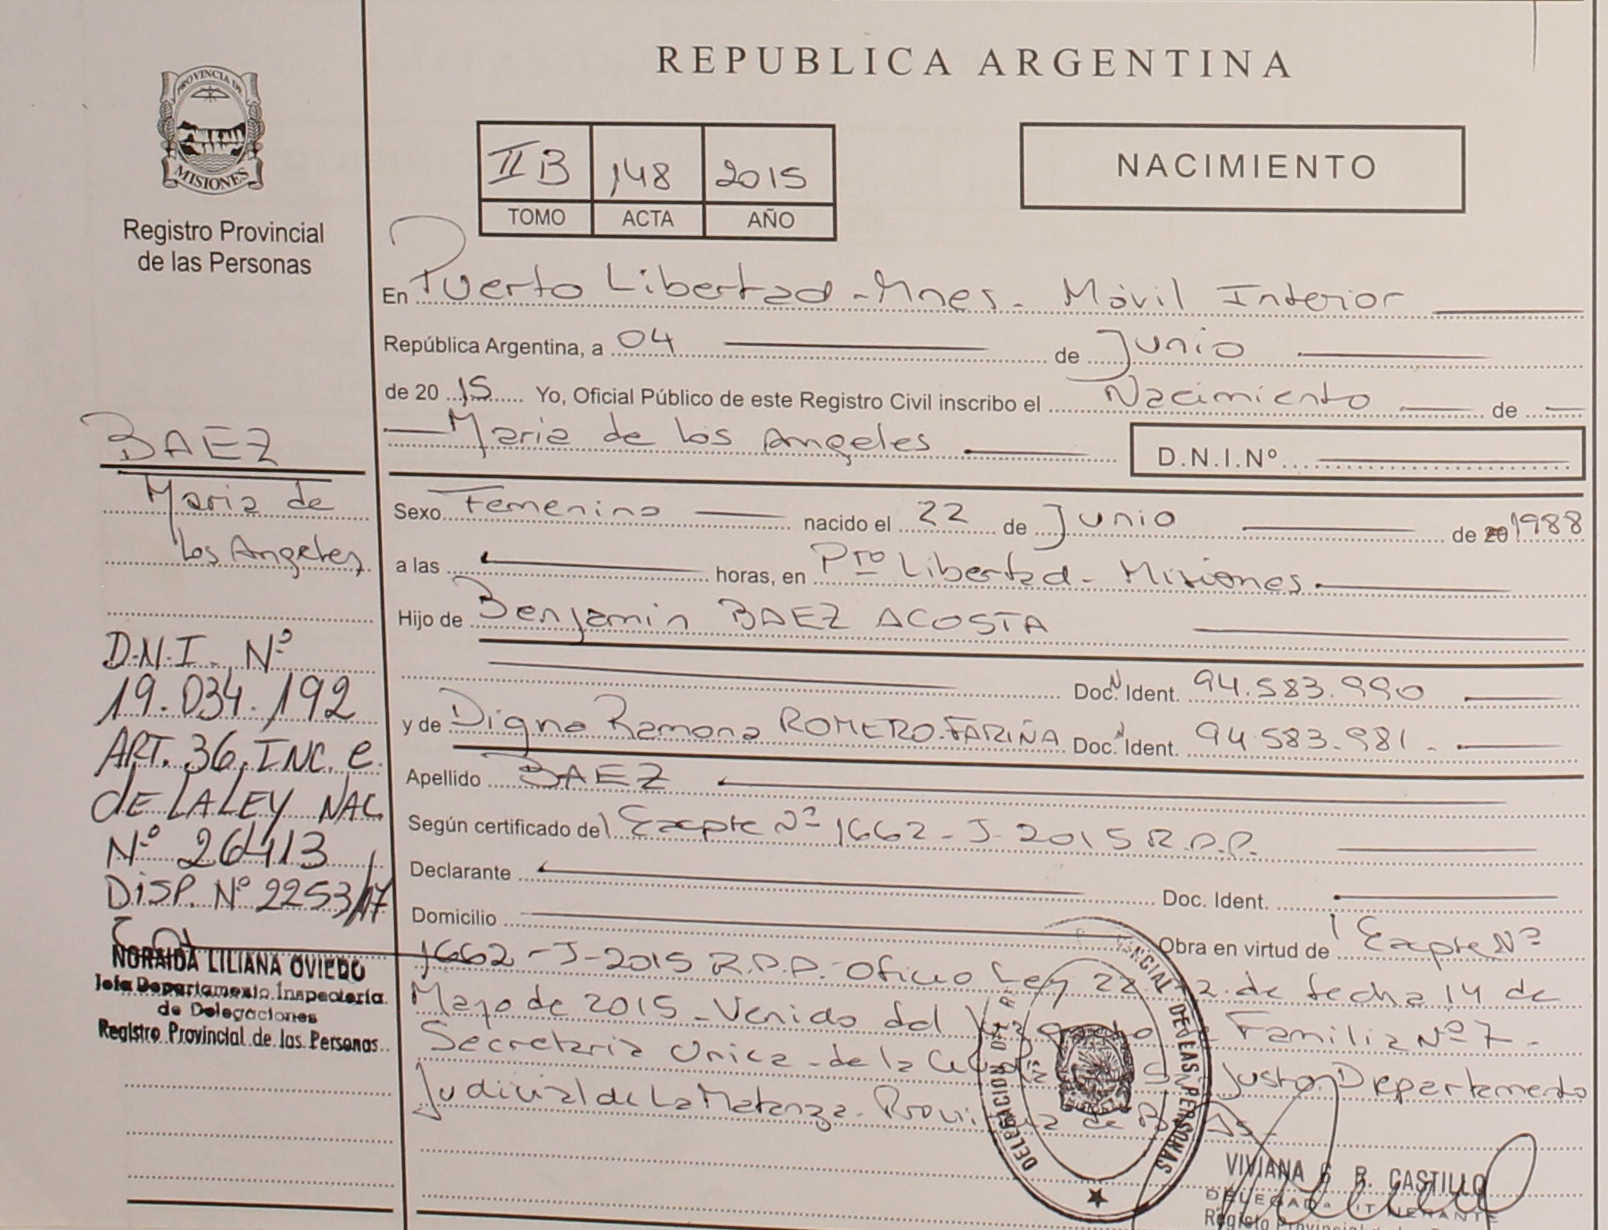 REPUBLICA ARGENTINA
PROVINCIA DE
MISIONES
Registro Provincial
de las Personas
II B 148 2015
TOMO ACTA AÑO
NACIMIENTO
En Puerto Libertad - Mnes - Móvil Interior
República Argentina, a 04 de Junio
de 20 15 Yo, Oficial Público de este Registro Civil inscribo el Nacimiento de
Maria de los Angeles
D.N.I.Nº
Sexo Femenino nacido el 22 de Junio de 20 1988
a las horas, en Pto Libertad - Misiones
Hijo de Benjamin BAEZ ACOSTA
Doc. Ident. 94.583.990
y de Digna Ramona ROMERO FARIÑA Doc. Ident. 94.583.981.
Apellido BAEZ
Según certificado del Expte Nº 1662-J-2015 R.P.P.
Declarante Doc. Ident.
Domicilio Obra en virtud de Expte Nº
1662-J-2015 R.P.P. Oficio Ley 22 de fecha 14 de
Mayo de 2015 - Venido del Familia Nº 7 -
Secretaria Unica - de la Justo Departamento
Judicial de La Matanza - de
BAEZ
Maria de
los Angeles
D.N.I. Nº
19.034.192
ART. 36, INC. e
de LA LEY NAC.
Nº 26413
DISP. Nº 2253/17
NORAIDA LILIANA OVIEDO
Jefa Departamento Inspectoría
de Delegaciones
Registro Provincial de las Personas
DELEGACION DE LAS PERSONAS
VIVIANA G R. CASTILLO
DELEGADA ITINERANTE
Registro Provincial de las